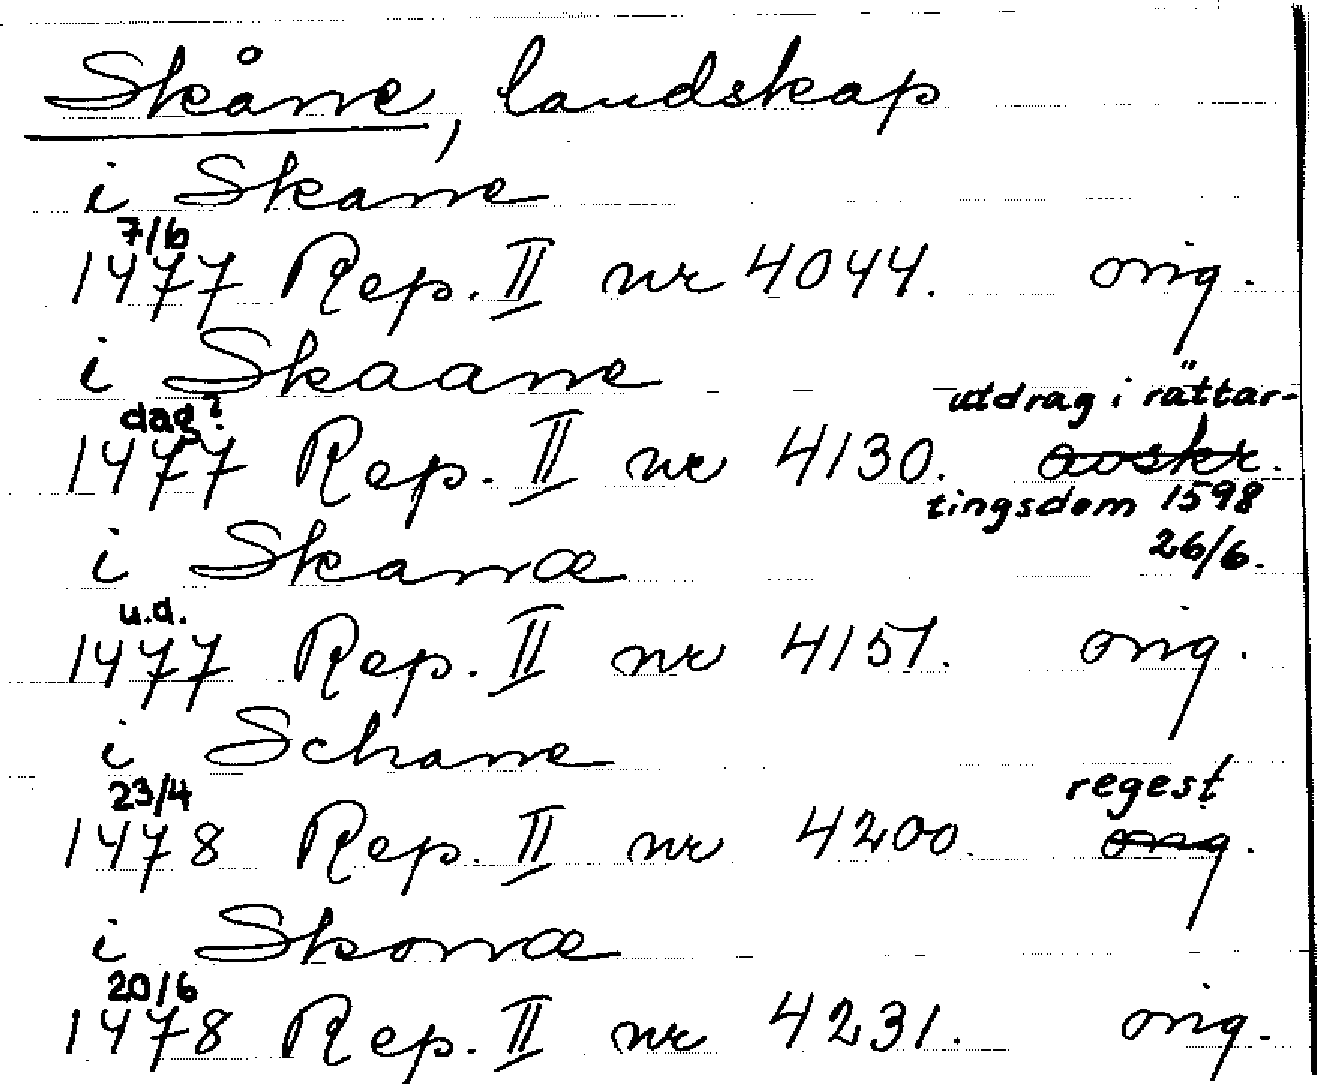 Skåne, landskap
i Skane
7/6
1477 Rep. II nr 4044. orig.
i Skaane
dag? uddrag i rättar-
1477 Rep. II nr 4130. avskr.
tingsdom 1598
i Skanæ 26/6.
u.d.
1477 Rep. II nr 4151. orig.
i Schane
23/4 regest
1478 Rep. II nr 4200. orig.
i Skonæ
20/6
1478 Rep. II nr 4231. orig.